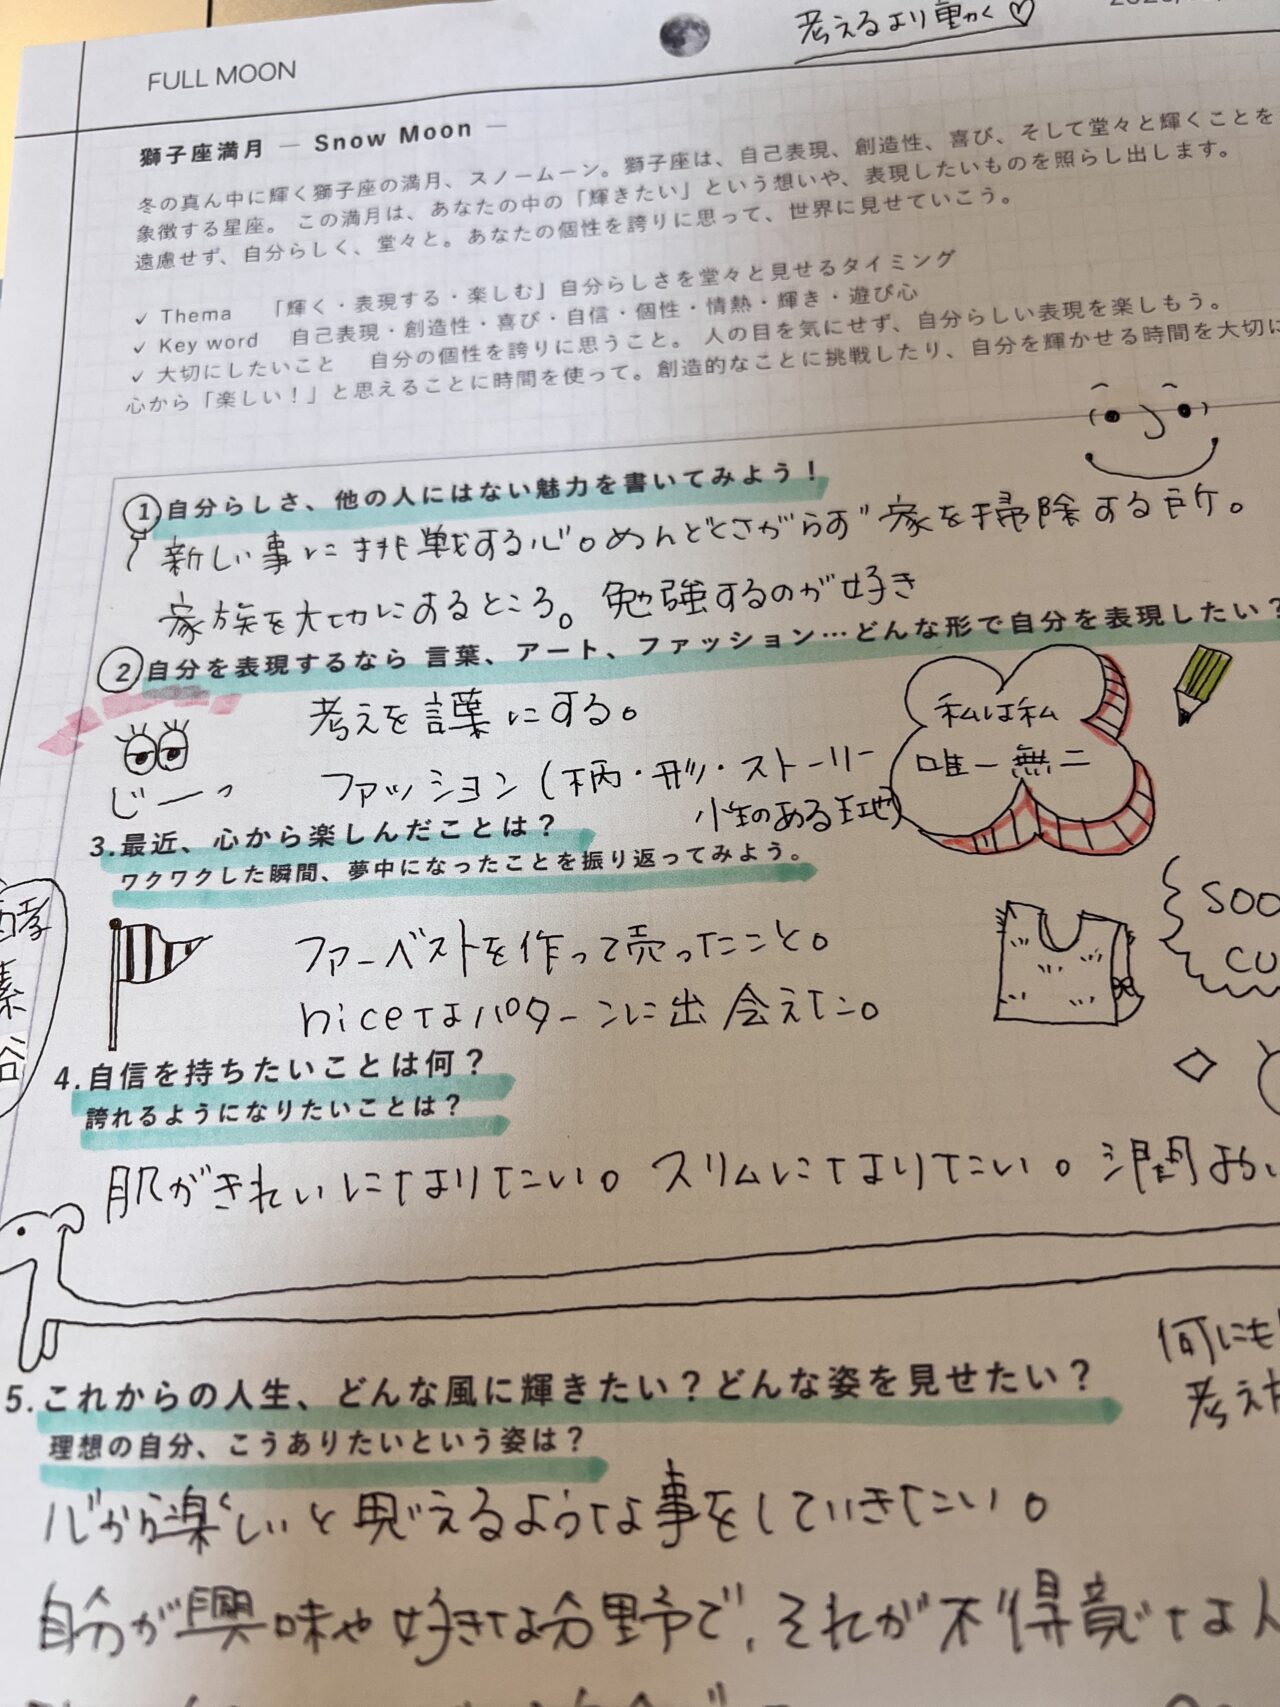 考えるより動く♡
FULL MOON
獅子座満月 — Snow Moon —
冬の真ん中に輝く獅子座の満月、スノームーン。獅子座は、自己表現、創造性、喜び、そして堂々と輝くことを
象徴する星座。この満月は、あなたの中の「輝きたい」という想いや、表現したいものを照らし出します。
遠慮せず、自分らしく、堂々と。あなたの個性を誇りに思って、世界に見せていこう。
✓ Thema 「輝く・表現する・楽しむ」自分らしさを堂々と見せるタイミング
✓ Key word 自己表現・創造性・喜び・自信・個性・情熱・輝き・遊び心
✓ 大切にしたいこと 自分の個性を誇りに思うこと。人の目を気にせず、自分らしい表現を楽しもう。
心から「楽しい！」と思えることに時間を使って。創造的なことに挑戦したり、自分を輝かせる時間を大切に
① 自分らしさ、他の人にはない魅力を書いてみよう！
新しい事に挑戦する心。めんどくさがらず家を掃除する所。
家族を大切にするところ。勉強するのが好き
② 自分を表現するなら 言葉、アート、ファッション…どんな形で自分を表現したい？
考えを言葉にする。
私は私
唯一無二
ファッション（柄・形・ストーリー
性のある生地）
じーっ
3.最近、心から楽しんだことは？
ワクワクした瞬間、夢中になったことを振り返ってみよう。
酵
素
ファーベストを作って売ったこと。
niceなパターンに出会えた。
SOO
CU
4.自信を持ちたいことは何？
誇れるようになりたいことは？
肌がきれいになりたい。スリムになりたい。潤
何にも
考え
5.これからの人生、どんな風に輝きたい？どんな姿を見せたい？
理想の自分、こうありたいという姿は？
心から楽しいと思えるような事をしていきたい。
自分が興味や好きな分野で、それが不得意な人